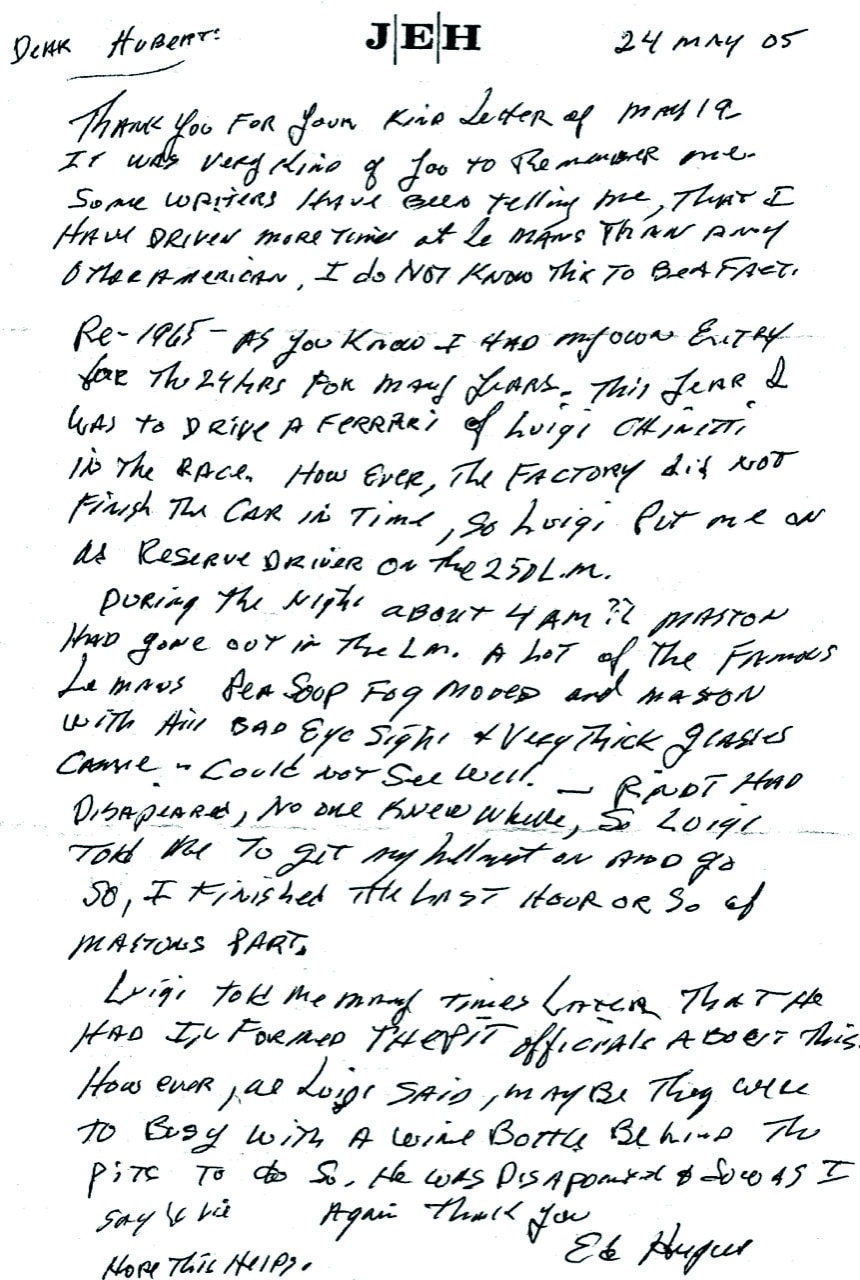 DEAR HUBERT:
J|E|H
24 MAY 05
THANK YOU FOR YOUR KIND LETTER of MAY 19
IT WAS VERY KIND of YOU TO REMEMBER me.
SOME WRITERS HAVE BEEN telling me, THAT I
HAVE DRIVEN MORE TIMES at Le MANS THAN ANY
OTHER AMERICAN, I do NOT KNOW THIS TO BE A FACT.
Re-1965- AS YOU KNOW I HAD MY OWN ENTRY
for THE 24 HRS FOR MANY YEARS. THIS YEAR I
WAS to DRIVE A FERRARI of LUIGI CHINETTI
IN THE RACE. HOW EVER, THE FACTORY did NOT
FINISH THE CAR IN TIME, SO LUIGI PUT me ON
AS RESERVE DRIVER ON the 250 L.M.
DURING THE NIGHT ABOUT 4 AM ?? MASTON
HAD GONE OUT IN THE LM. A LOT of THE FAMOUS
LE MANS PEA SOUP FOG MOVED and MASTON
WITH HIS BAD EYE SIGHT & VERY THICK GLASSES
CAME - COULD NOT SEE WELL. — RINDT HAD
DISAPEARED, NO ONE KNEW WHERE, SO LUIGI
TOLD ME TO get my helmet on AND go
SO, I FINISHED THE LAST HOUR OR SO of
MASTONS PART.
LUIGI told me many TIMES LATER THAT HE
HAD INFORMED THE PIT officials ABOUT THIS.
HOW EVER, as LUIGI SAID, MAY BE THEY WERE
TO BUSY WITH A WINE BOTTLE BEHIND THE
PITS TO do SO. HE WAS DISAPOINTED & SO WAS I
SAY Again THANK YOU
HOPE THIS HELPS. Ed Hugus